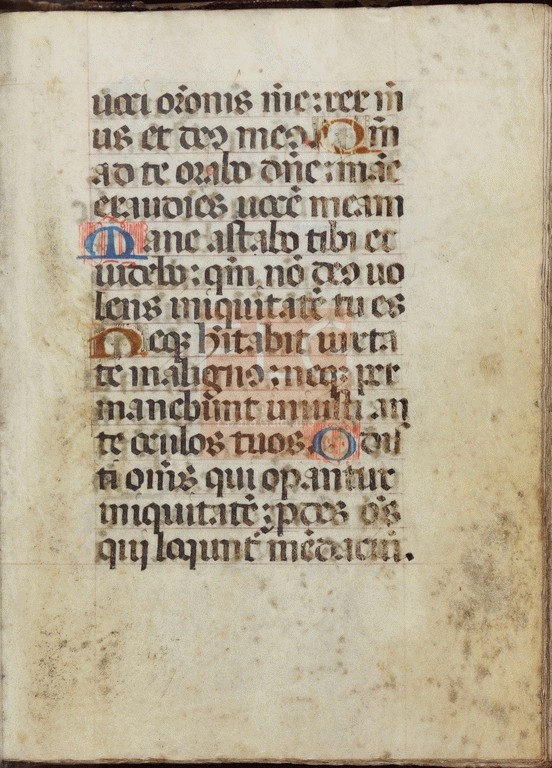 uoci or̄onis me̅e: rex m̄
us et deꝰ meꝰ. Qm̄
ad te orabo dn̄e: mān̄e
exaudies uoce̅ meam
Mane astabo tibi et
uidebo: qm̄ nō deꝰ uo
lens iniquitate̅ tu es
Neqꝫ h̄itabit iuxta
te malignꝰ: neqꝫ per
maneb̄unt iniusti an
te oculos tuos. Odis
ti om̄s qui opantur
iniquitate̅: ꝑdes o̅s
qui loqunt̄ me̅daciū.